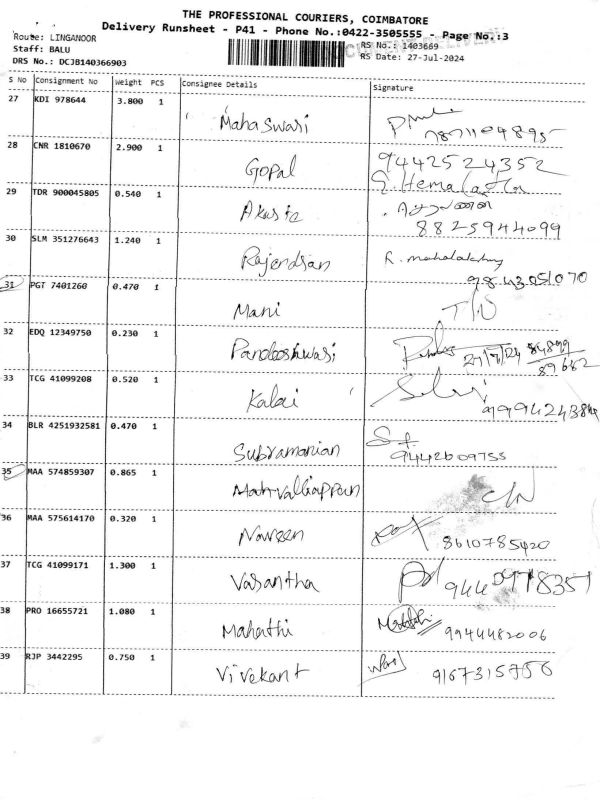 THE PROFESSIONAL COURIERS, COIMBATORE
Delivery Runsheet - P41 - Phone No.:0422-3505555 - Page No.:3
Route: LINGANOOR
RS No.: 1403669
Staff: BALU
RS Date: 27-Jul-2024
DRS No.: DCJB140366903
S No Consignment No Weight PCS Consignee Details Signature
27 KDI 978644 3.800 1
Mahaswari
28 CNR 1810670 2.900 1
Gopal 9442524352
S. Hemalatha
29 TDR 900045805 0.540 1
8825944099
30 SLM 351276643 1.240 1
Rajendran R. mahalakshmy
9843051070
31 PGT 7401260 0.470 1
Mani
32 EDQ 12349750 0.230 1
Pandeeshwari 27/7/24
89682
33 TCG 41099208 0.520 1
Kalai
34 BLR 4251932581 0.470 1
Subramanian 9442609755
35 MAA 574859307 0.865 1
36 MAA 575614170 0.320 1
Naveen 8610785420
37 TCG 41099171 1.300 1
Vasantha
38 PRO 16655721 1.080 1
Mahathi 9944482006
39 RJP 3442295 0.750 1
Vivekant 9167315756